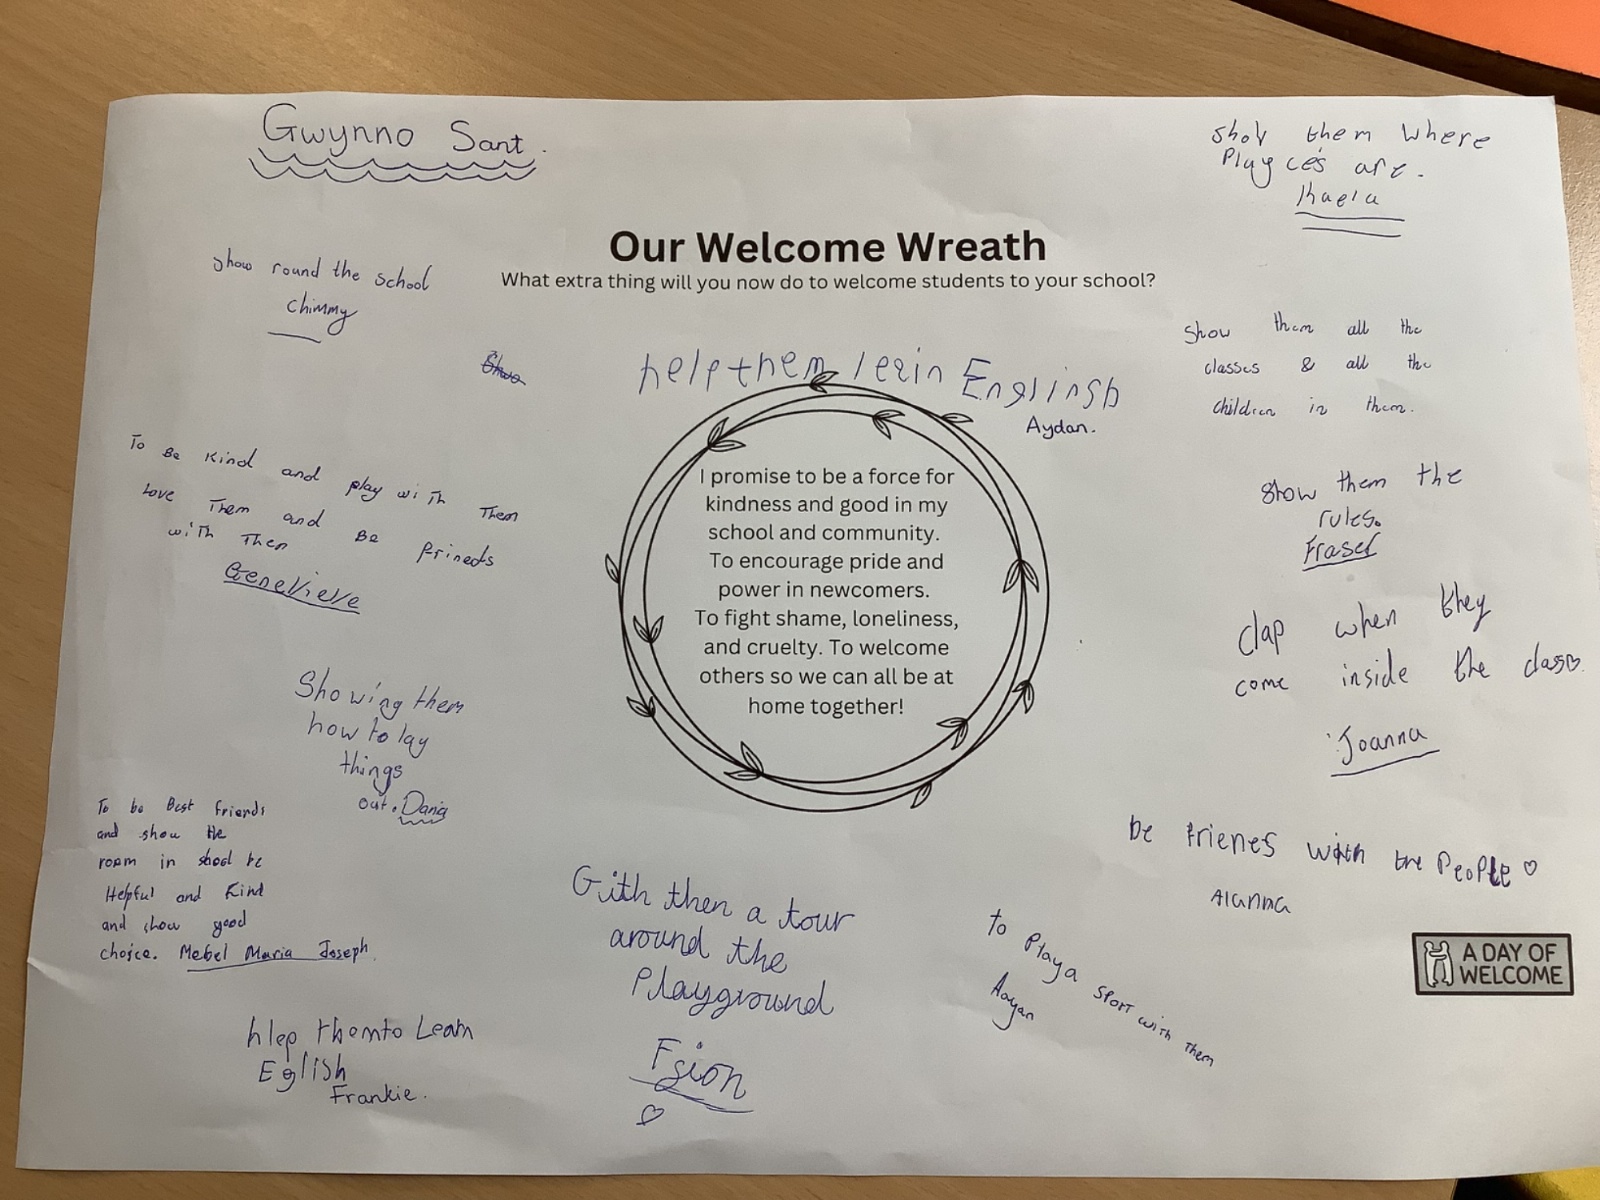 Gwynno Sant.
Show them where
Playces are.
Kaela
Our Welcome Wreath
What extra thing will you now do to welcome students to your school?
show round the school
Chimmy
help them lerin Englinsh
Aydan.
Show them all the
classes & all the
children in them.
To Be Kind and play with Them
Love Them and Be frineds
with Them
Genevieve
Show them the
rules.
Fraser
I promise to be a force for
kindness and good in my
school and community.
To encourage pride and
power in newcomers.
To fight shame, loneliness,
and cruelty. To welcome
others so we can all be at
home together!
clap when they
come inside the class
Joanna
Showing them
how to lay
things
out. Dania
To be Best friends
and show the
room in shool be
Helpful and Kind
and show good
chojce. Mebel Maria Joseph
be frienes with the People ♡
Alanna
Gith then a tour
around the
Playground
♡
to Playa sport with them
Aayan
A DAY OF
WELCOME
hlep themto Learn
Eglish
Frankie.